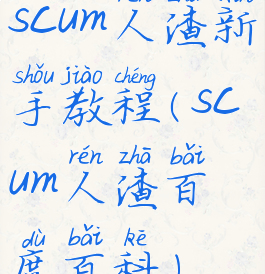 scum人渣新
shǒu jiào chéng
手教程(sc
rén zhā bǎi
um人渣百
dù bǎi kē
度百科)